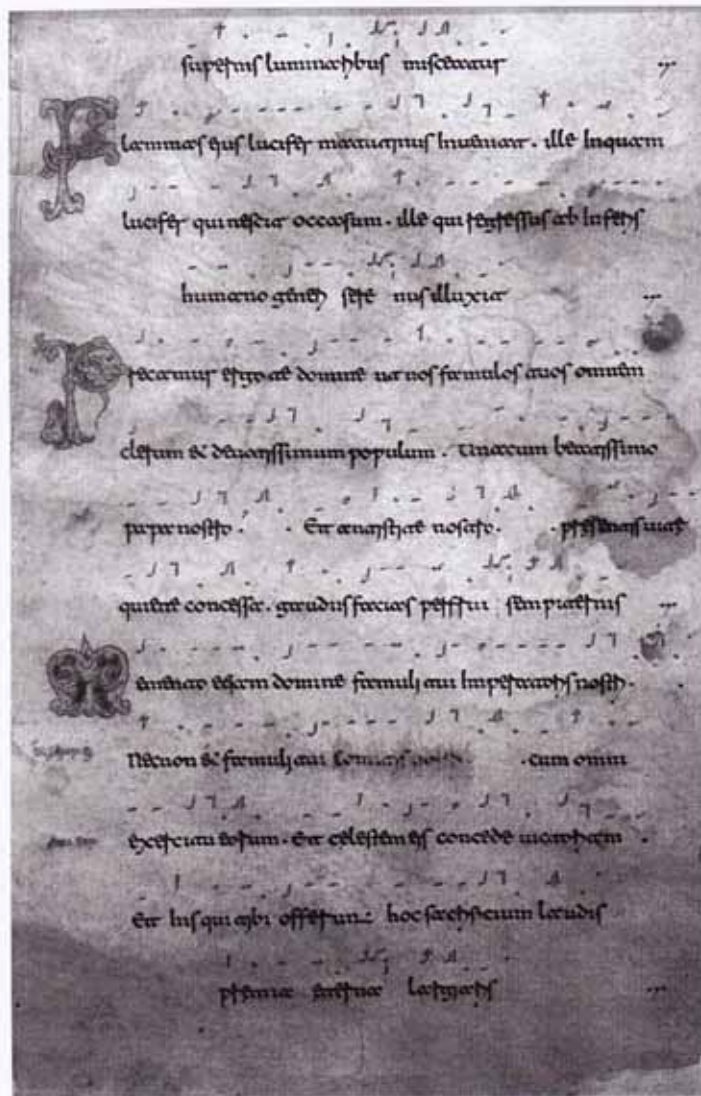 supernis luminaribus misceatur
Flammas eius lucifer matutinus inueniat. ille inquam
lucifer qui nescit occasum. ille qui regressus ab inferis
humano generi sere nus illuxit
Precamur ergo te domine ut nos famulos tuos omnem
clerum & deuotissimum populum. Unacum beatissimo
papa nostro. Et antistite nostro. presentis uite
quiete concessa. gaudiis facias perfrui sempiternis
Memento etiam domine famuli tui imperatoris nostri.
Necnon & famuli tui cum omni
exercitu eorum. Et celestem eis concede uictoriam.
Et his qui tibi offerunt hoc sacrificium laudis
premia eterna largiaris